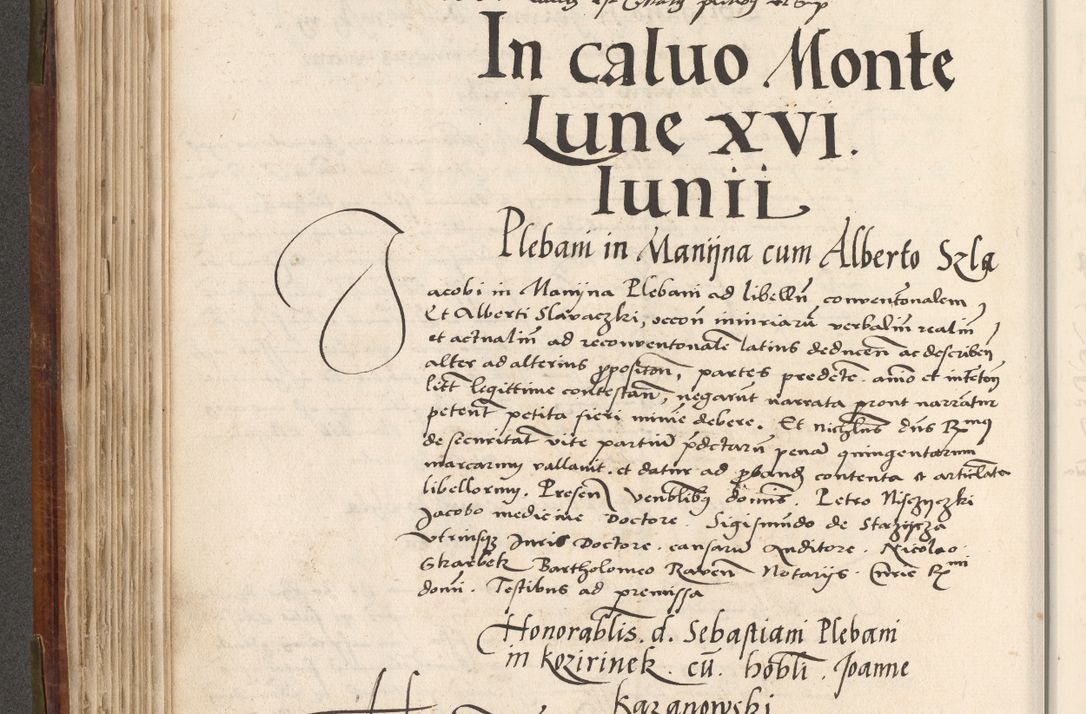 In caluo Monte
Lune XVI.
Iunii
Plebani in Manijna cum Alberto Szla
Jacobi in Manijna Plebani ad libellũ conventonalem
Et Alberti Slavaczki, occoñ iniuriarũ verbaliũ realiũ
et actualiũ ad reconventonale latius deduceñ ac describeñ
alter ad alterius ꝓpositoñ, partes predcte. amõ et intetoñ
litẽ legittime contestañ, negarut narrata pront narratur
petent petita fieri minime debere. Et nichilus dñs Rmus
de securitat vite partiũ pdctarũ pena quingentarum
marcarum vallavit. et datur ad ꝓband contenta et articlata
libellorum. Presen venblibus dominis. Petro Miszyczki
Jacobo medicine Doctore. Sigismũdo de Stezicza
Utriusqz Juris Doctore. causarũ Auditore. Nicolao
Skarbek Bartholomeo Raven Notariis. Curie Rmi
domi. Testibus ad premissa
Honorablis. d. Sebastiani Plebani
in kozirinek. cũ. hobli. Joanne
Kazanowski